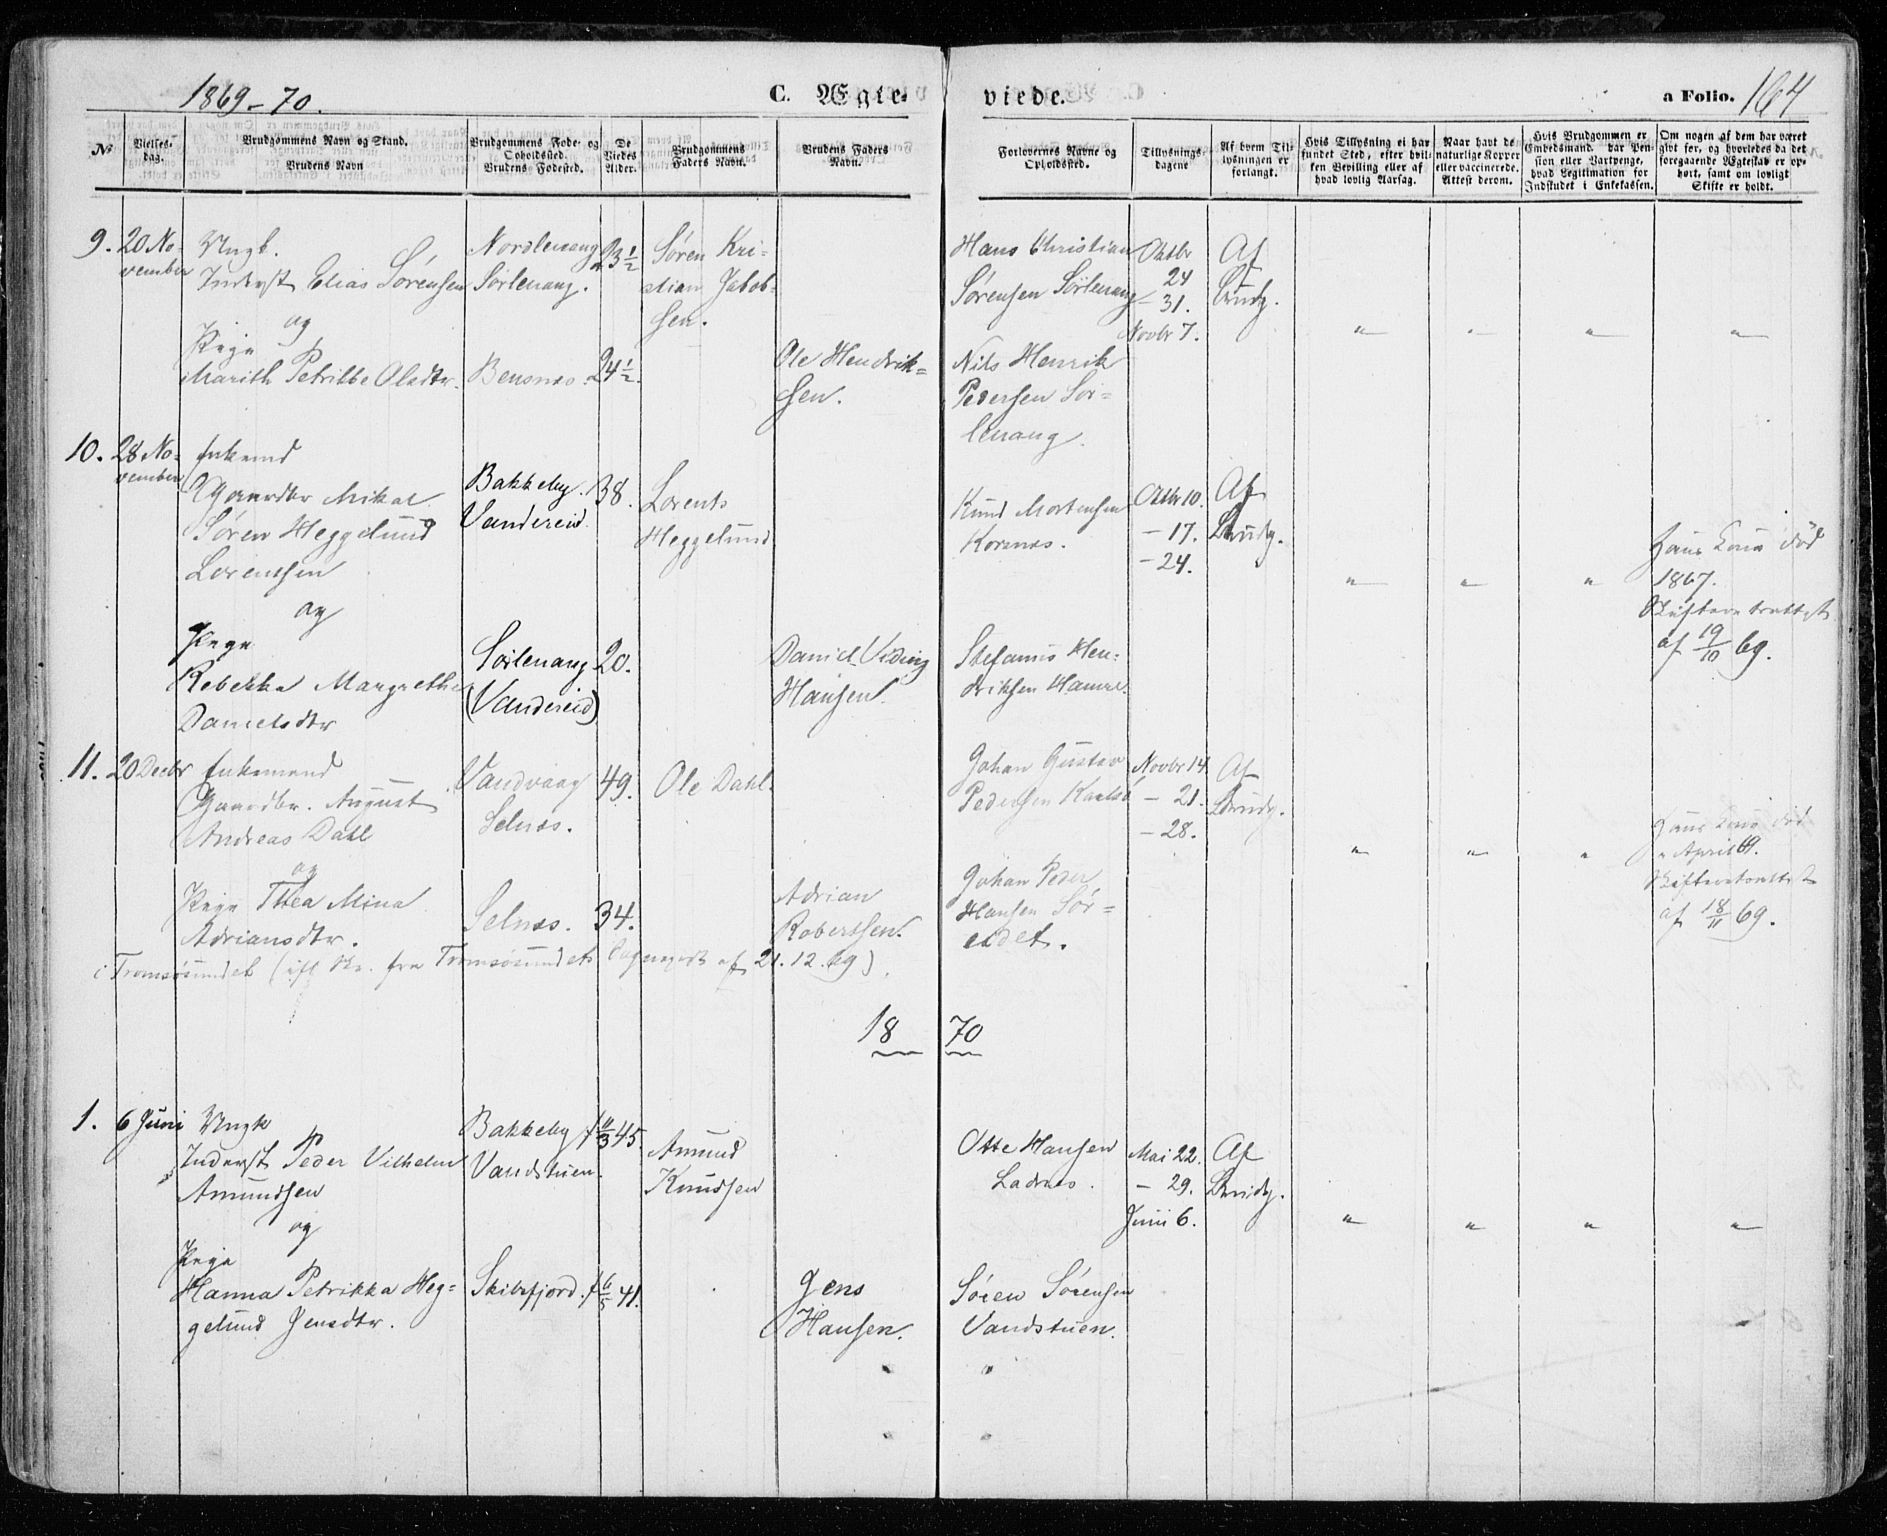 1869-70.
C. Ægte- viede.
a Folio. 164
No
Vielses-dag.
Brudgommens Navn og Stand.
Brudens Navn
Brudgommens Føde- og Opholdssted.
Brudens Fødested.
De Viedes Alder.
Brudgommens Faders Navn.
Brudens Faders Navn.
Forlovernes Navne og Opholdssted.
Tillysnings-dagene
Af hvem Til-lysningen er forlangt.
Hvis Tillysning ei har fundet Sted, efter hvil-ken Bevilling eller af hvad lovlig Aarsag.
Naar havt de naturlige Kopper eller vaccinerede. Attest derom.
Hvis Brudgommen er Embedsmand har Pen-sion eller Vartpenge, hvad Legitimation for Indskudet i Enkekassen.
Om nogen af dem har været givt før, og hvorledes da det foregaaende Ægteskab er op-hørt, samt om lovligt Skifte er holdt.
9. 20 No-
vember
Ungk.
Inderst Elias Sørensen
og
Pige
Marith Petrikke Olsdtr.
Nordlenang
Sørlenang.
Bensnæs.
23 1/2
24 1/2.
Søren Kri-
stian Jakob-
sen.
Ole Hendrik=
sen.
Hans Christian
Sørensen Sørlenang
Nils Henrik
Pedersen Sør=
lenang.
Oktbr
24
- 31.
Novbr 7.
Af
Brudg.
" " " "
10. 28 No-
vember
Enkemd
Gaardbr Mikal
Søren Heggelund
Lorentsen
og
Pige
Rebekka Margrethe
Danielsdtr
Bakkeby.
Vandereid.
Sørlenang
(Vandereid)
38.
20.
Lorents
Heggelund
Daniel Viding
Hansen.
Knud Mortensen
Kornæs.
Stefanus Hen-
driksen Hamre.
Oktbr 10.
- 17.
- 24.
Af
Brudg.
" " "
Hans Kone død
1867.
Skifteretsattest
af 19/10 69.
11. 20 Decbr
Enkemand
Gaardbr. August
Andreas Dahl
og
Pige Thea Mina
Adriansdtr.
Vandvaag
Selnæs.
Selnæs.
49.
34.
Ole Dahl.
Adrian
Robertsen.
Johan Gustav
Pedersen Karlsø
Johan Peder
Hansen Sør=
eidet.
Novbr 14
- 21.
- 28.
Af
Brudg.
" " "
Hans Kone død
April 69.
Skifteretsattest
af 18/11 69.
i Tromsøsundet (ifl Skr. fra Tromsøsundets Sognepræst af 21.12.69).
18 70
1. 6 Juni
Ungk
Inderst Peder Vilhelm
Amundsen
og
Pige
Hanna Petrikka Heg=
gelund Jensdtr.
Bakkeby
Vandstuen.
Skibsfjord.
f 11/3 45.
f 6/5 41.
Amund
Knudsen
Jens
Hansen.
Otte Hansen
Ladnæs.
Søren Sørensen
Vandstuen.
Mai 22.
- 29.
Juni 6.
Af
Brudg.
" " " "